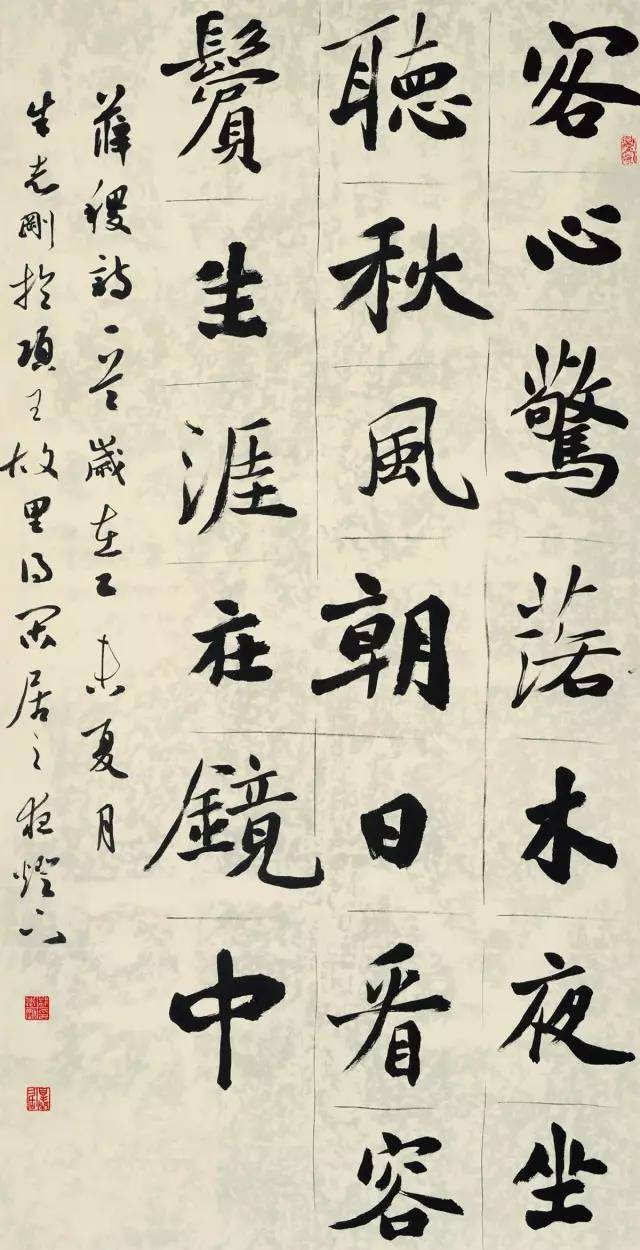 客心驚落木夜坐
聽秋風朝日看容
鬢生涯在鏡中
薛稷詩一首歲在乙未夏月
剛於項王故里得閑居之夜燈下